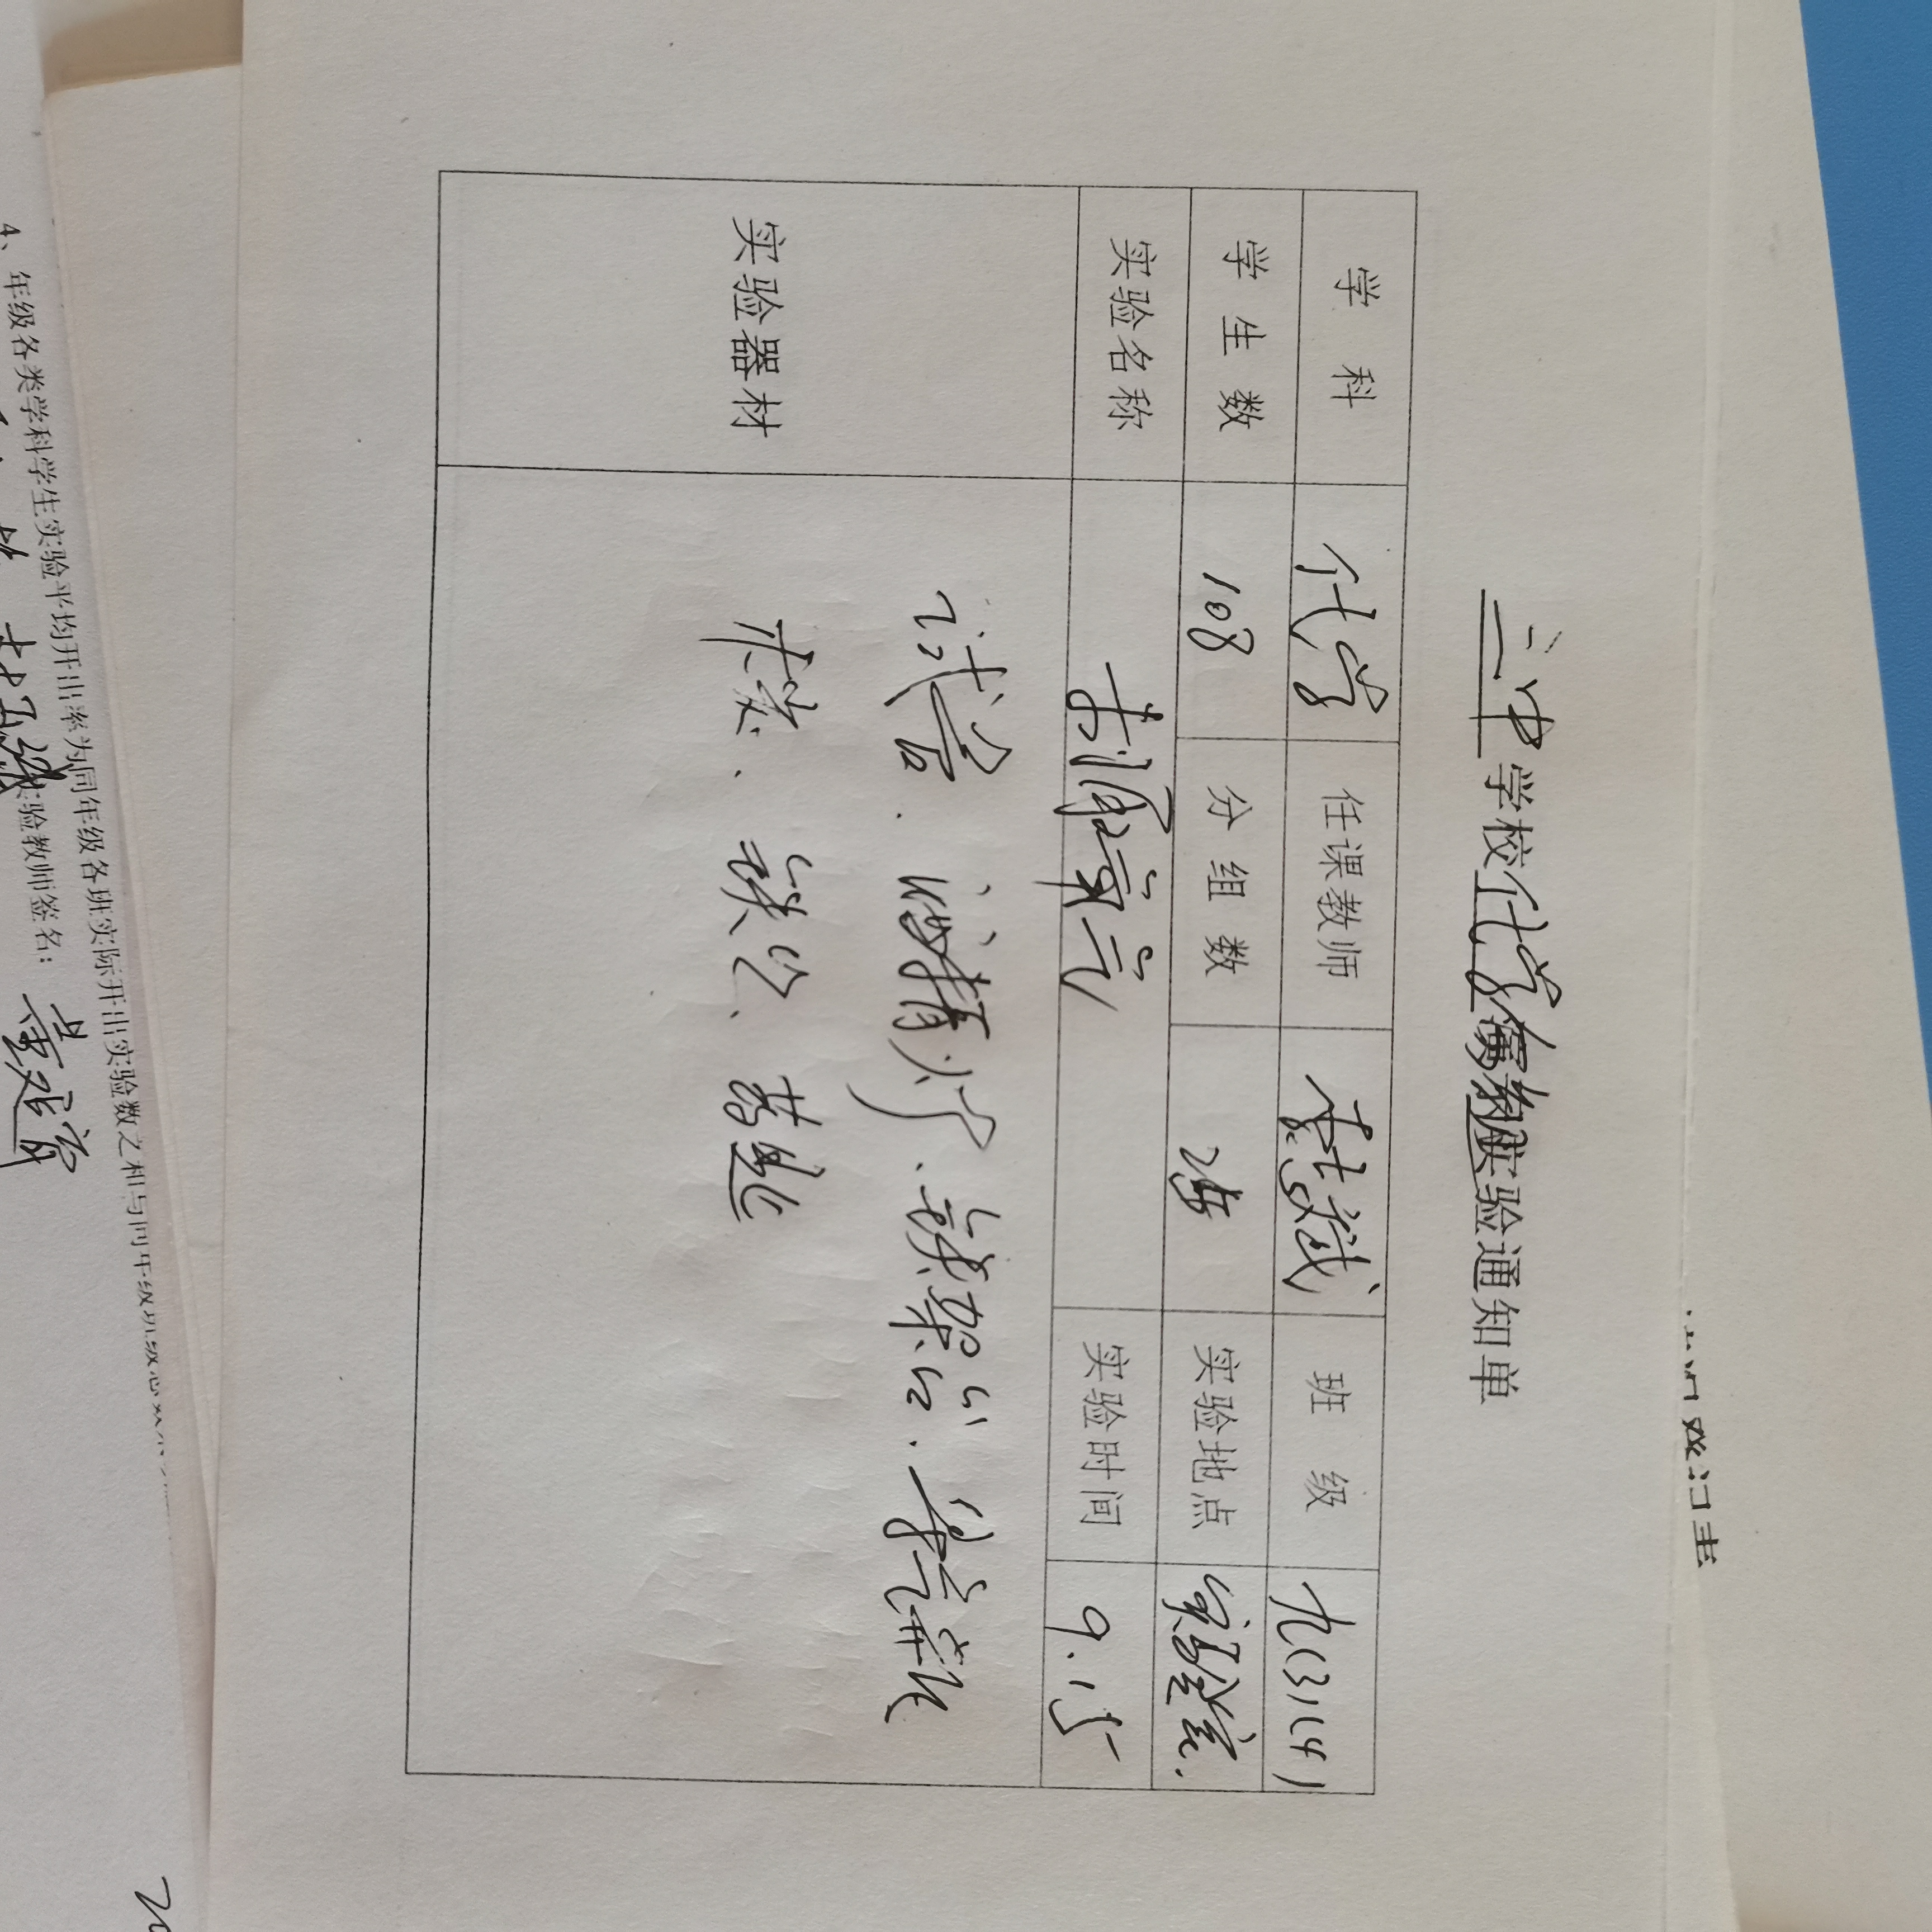 三中学校化学实验通知单
学科 化学 任课教师 班级 九(3)(4)
学生数 108 分组数 实验地点 实验室
实验名称 制氧气 实验时间 9.15
实验器材 试管、酒精灯、铁架台、集气瓶
水槽、镊子、药匙
4、年级各类学科学生实验平均开出率为同年级各班实际开出实验数之和与同年级班级总数
实验教师签名：